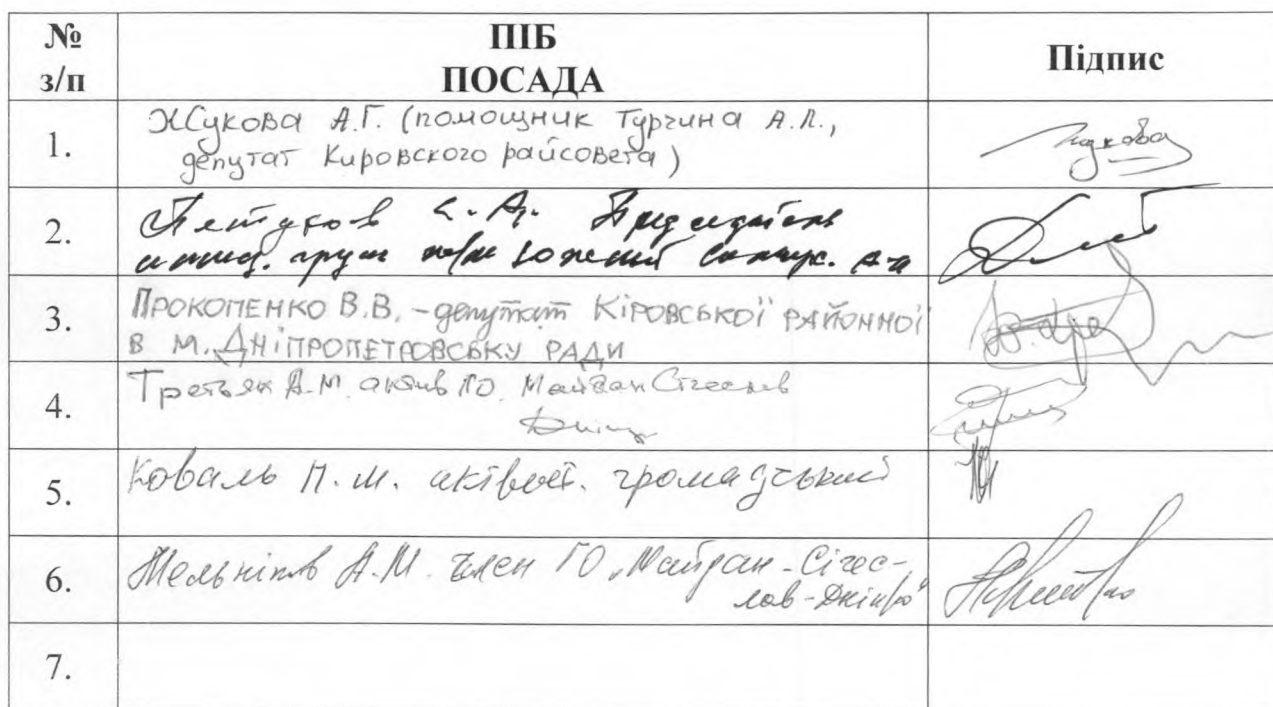 № з/п
ПІБ ПОСАДА
Підпис
1.
Жукова А.Г. (помощник Турчина А.Л.,
депутат Кировского райсовета)
Жукова
2.
Петухов А.
3.
Прокопенко В.В. - депутат Кіровської районної
в м. Дніпропетровську ради
4.
Третьяк А.М. актив ГО. Майдан Січеслав
Дніпр
5.
Коваль П.М. активіст. громадський
6.
Мельніков А.М. член ГО „Майдан-Січес-
лав-Дніпро"
7.